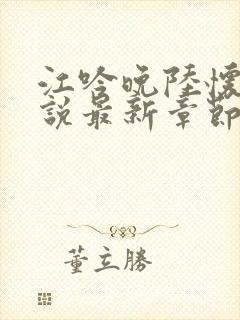 江吟晚陸懷
說最新章節
董立勝